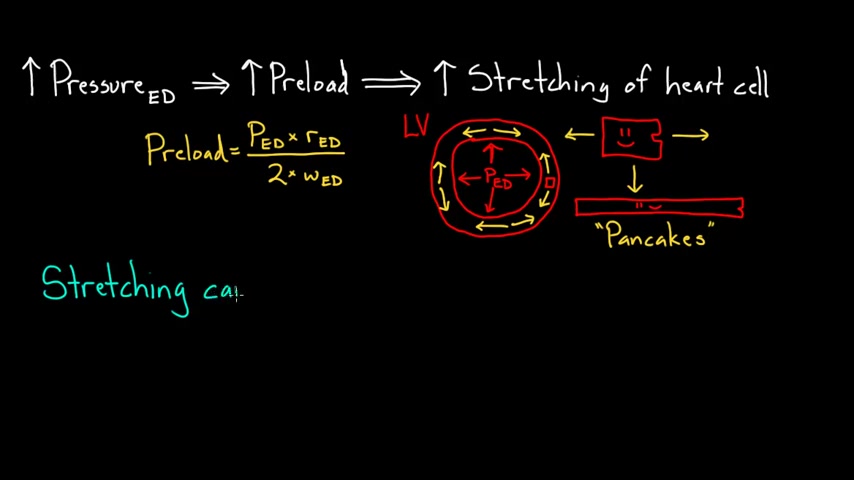 ↑ Pressure ED ⇒ ↑ Preload ⇒ ↑ Stretching of heart cell
LV
Preload = P ED × r ED / 2 × w ED
P ED
"Pancakes"
Stretching ca